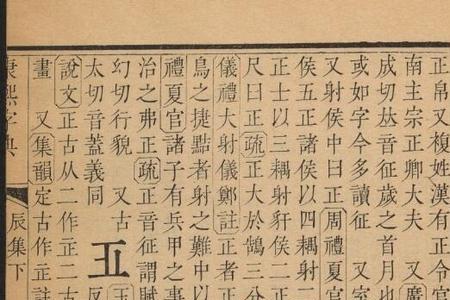 正帛又複姓漢有正令官
南主宗正卿大夫 又廣
成切𠀤音征歲之首月也
或如字今多讀征 又
又射侯中曰正周禮夏官
侯五正諸侯以四耦射
正士以三耦射豻侯二正
尺曰正疏正大於鵠三分
儀禮大射儀鄭註正者正
鳥之捷黠者射之難中以
禮夏官諸子有兵甲之事
治之弗正疏正音征謂賦
幻切行貌 又古 玉
太切音蓋義同
反
說文正古从二作正二古
畫 又集韻定古作正註
康熙字典 辰集下